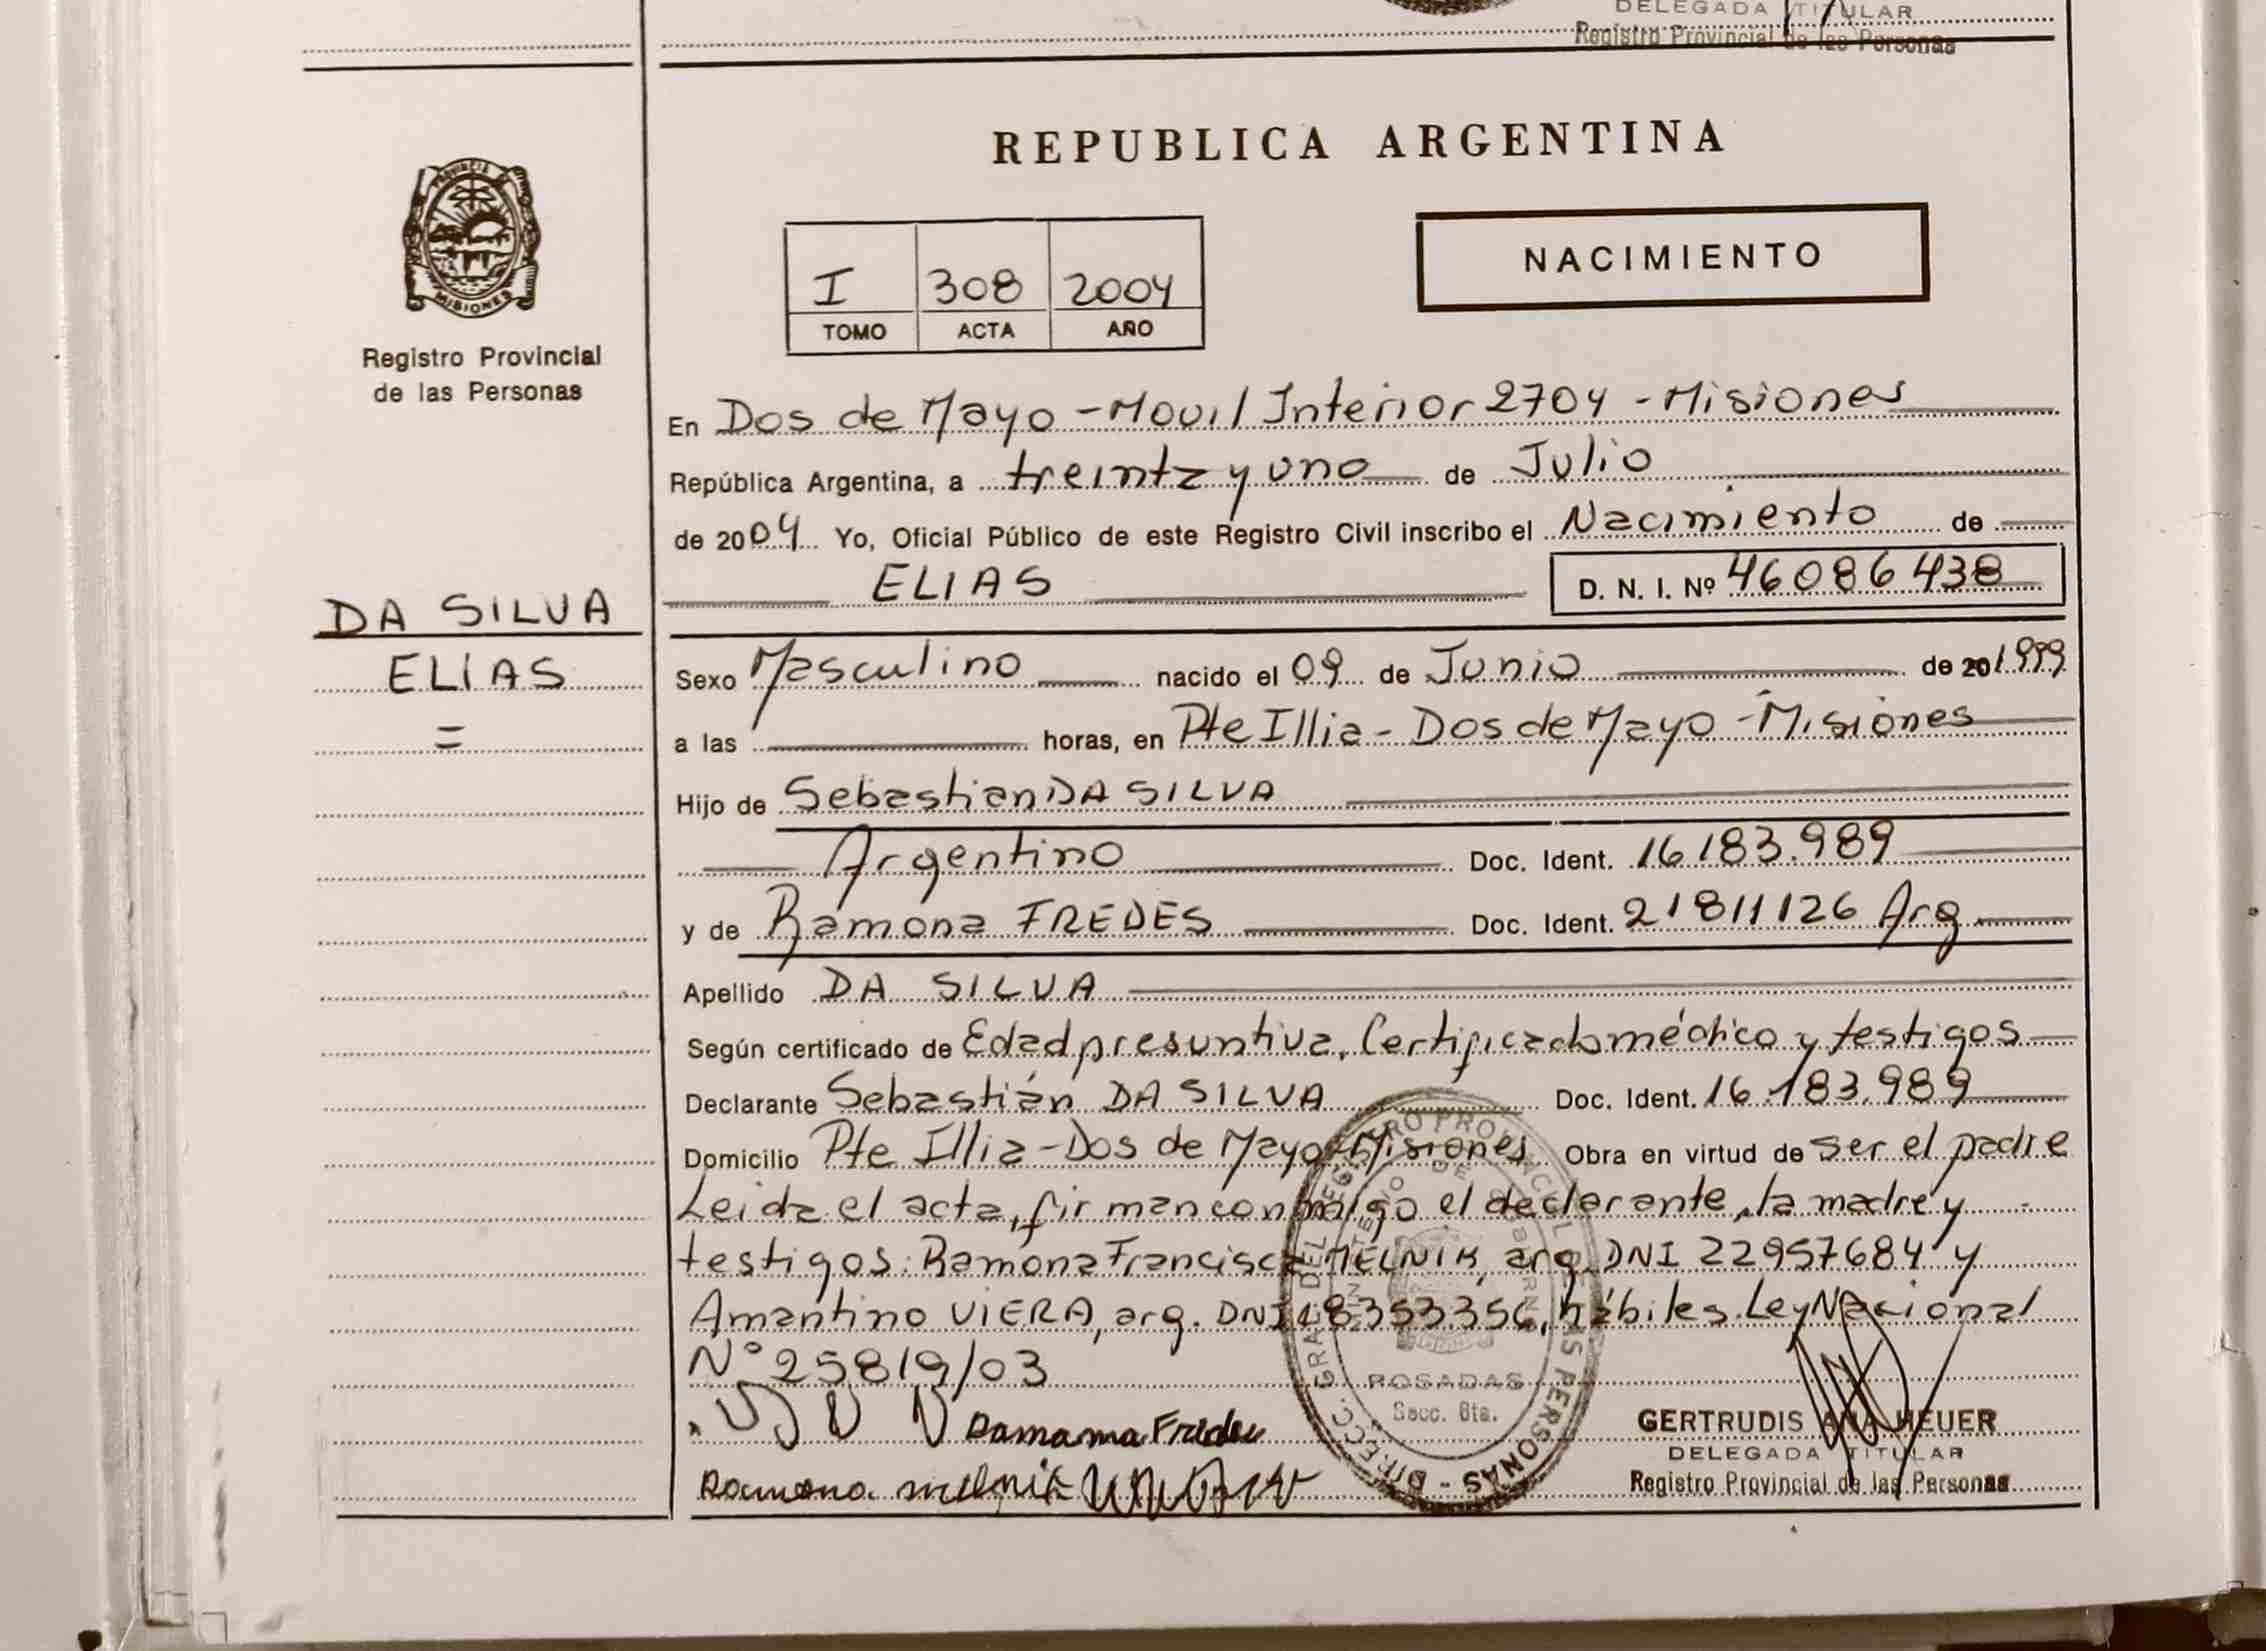 DELEGADA TITULAR
Registro Provincial de las Personas
REPUBLICA ARGENTINA
PROVINCIA DE
MISIONES
Registro Provincial
de las Personas
I 308 2004
TOMO ACTA AÑO
NACIMIENTO
En Dos de Mayo - Movil Interior 2704 - Misiones
República Argentina, a treinta y uno de Julio
de 2004 Yo, Oficial Público de este Registro Civil inscribo el Nacimiento de
ELIAS D. N. I. Nº 46086438
DA SILVA
ELIAS
=
Sexo Masculino nacido el 09 de Junio de 20 1999
a las horas, en Pte Illia - Dos de Mayo - Misiones
Hijo de Sebastian DA SILVA
Argentino Doc. Ident. 16183.989
y de Ramona FREDES Doc. Ident. 21811126 Arg
Apellido DA SILVA
Según certificado de Edad presuntiva, Certificado médico y testigos
Declarante Sebastián DA SILVA Doc. Ident. 16.183.989
Domicilio Pte Illia - Dos de Mayo - Misiones Obra en virtud de ser el padre
Leida el acta, firman conmigo el declarante, la madre y
testigos: Ramona Francisca MELNIK, arg. DNI 22957684 y
Amantino VIERA, arg. DNI 18353356, hábiles. Ley Nacional
Nº 25819/03
Ramona Fredes
Ramona melnik
DIRECC. GRAL DEL REGISTRO PROVINCIAL DE LAS PERSONAS
MINISTERIO DE GOBIERNO
POSADAS
Secc. 6ta.
GERTRUDIS ANA HEUER
DELEGADA TITULAR
Registro Provincial de las Personas